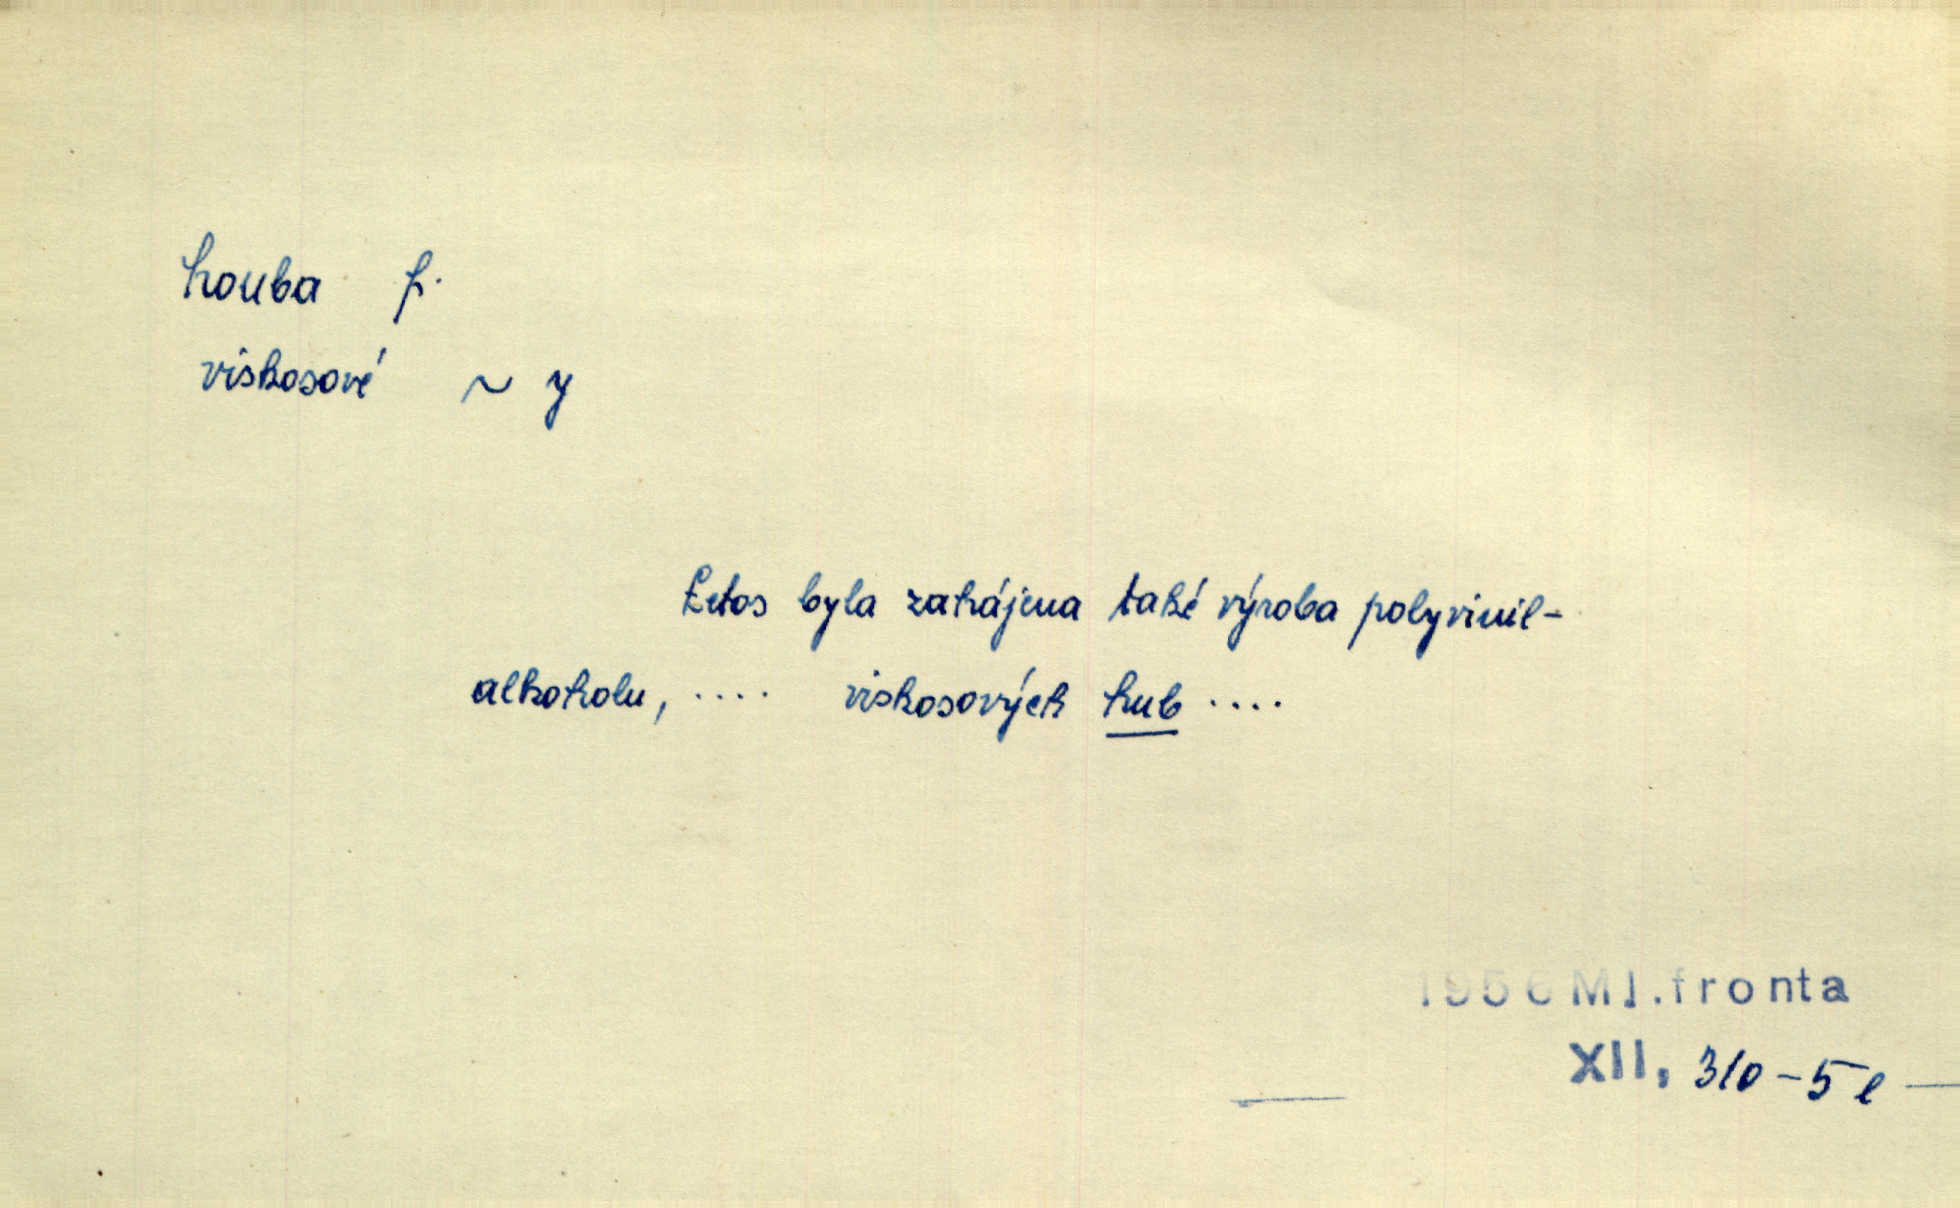 houba f.
viskosové ~ y
Letos byla zahájena také výroba polyvinil-
alkoholu, .... viskosových hub ....
1956 Ml. fronta
XII, 310-5 l